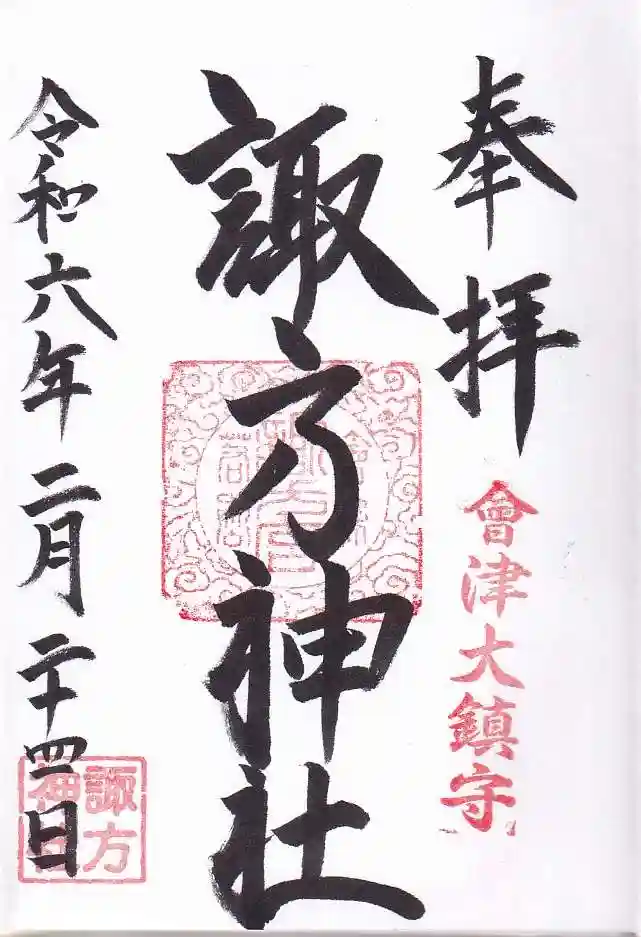 奉拝
會津大鎮守
諏方神社
令和六年二月二十四日
諏方神社